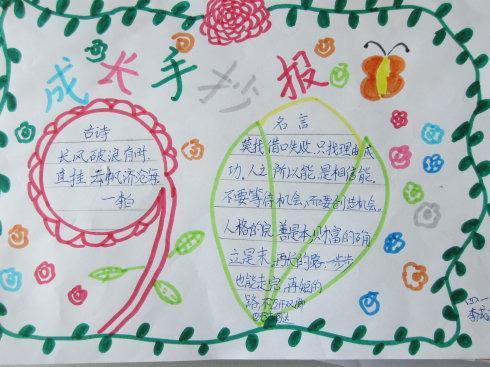 成长手抄报
古诗
长风破浪会有时,
直挂云帆济沧海
名言
莫找借口失败,只找理由成
功,人之所以能,是相信能,
不要等待机会,而要创造机会。
人格的完善是本,财富的确
立是末,再长的路,一步步
也能走完,再短的
路,不迈开双脚
四一